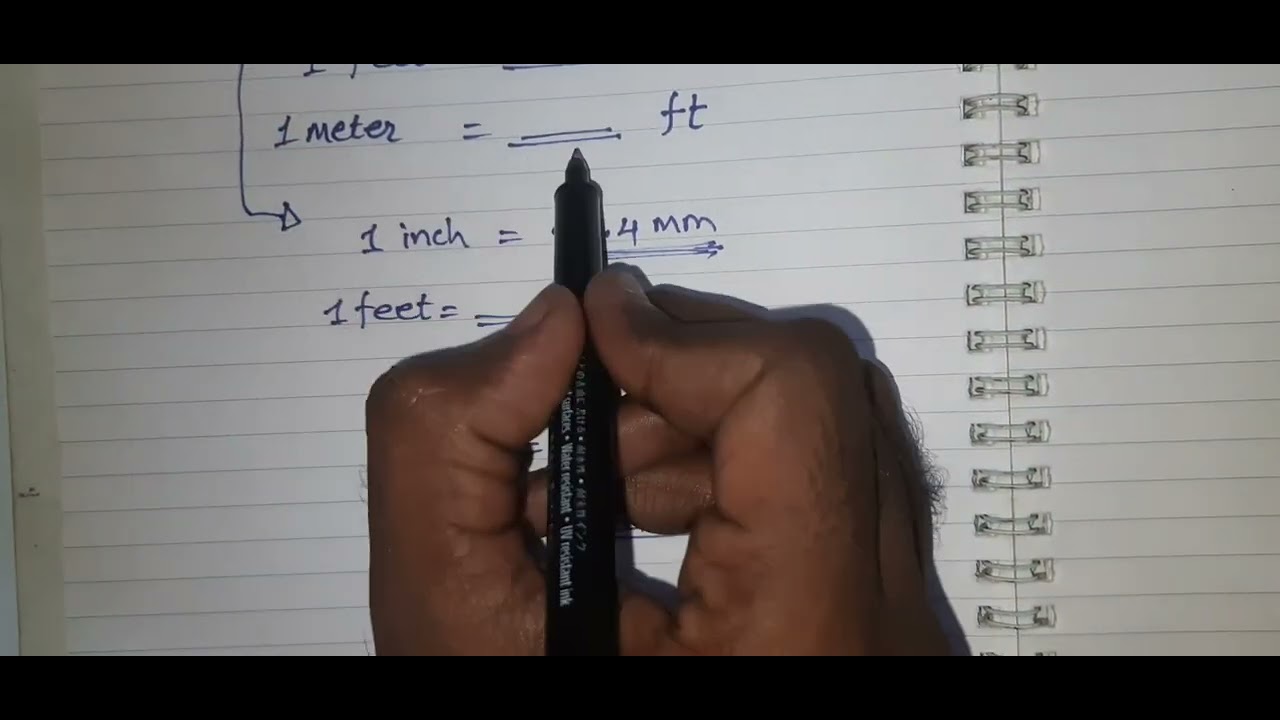 1 meter = ft
1 inch = .4 mm
1 feet =
surfaces • Water resistant • UV resistant ink